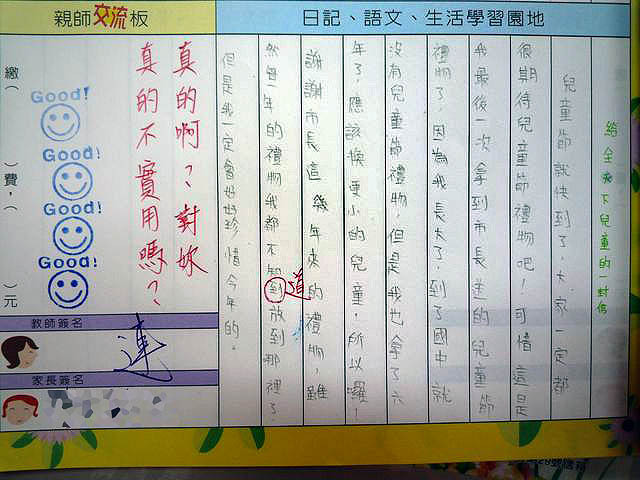 日記、語文、生活學習園地
給全天下兒童的一封信
兒童節就快到了,大家一定都
很期待兒童節禮物吧!可惜這是
我最後一次拿到市長送的兒童節
禮物了,因為我長大了,到了國中就
沒有兒童節禮物,但是我也拿了六
年了,應該換更小的兒童,所以囉!
謝謝市長這幾年來的禮物,雖
然每一年的禮物我都不知到放到哪裡了,
道
但是我一定會好好珍惜今年的。
親師交流板
真的啊?對妳
真的不實用嗎?
繳( )費,( )元
Good!
Good!
Good!
Good!
教師簽名
連
家長簽名